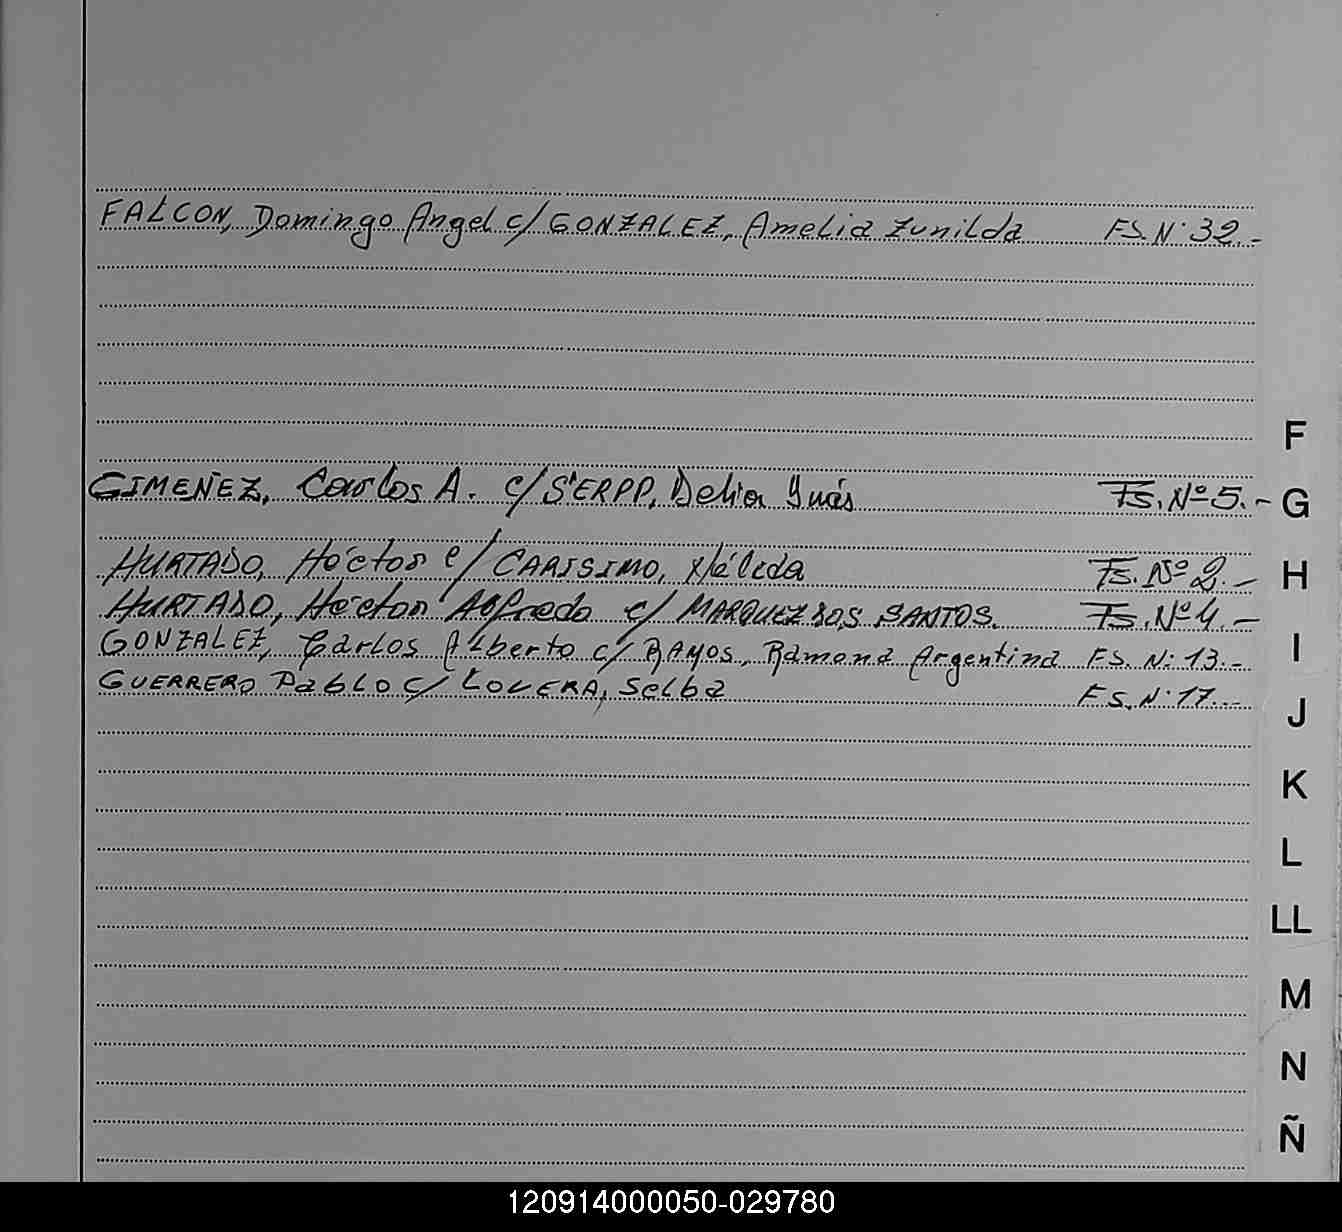 FALCON, Domingo Angel c/ GONZALEZ, Amelia Zunilda FS N° 32.-
F
GIMENEZ, Carlos A. c/ SERPP, Delia Inés Fs. Nº 5.-
G
HURTADO, Héctor c/ CARISSIMO, Nélida Fs. Nº 2.-
H
HURTADO, Héctor Alfredo c/ MARQUEZ DOS SANTOS. Fs. Nº 4.-
GONZALEZ, Carlos Alberto c/ RAMOS, Ramona Argentina FS. N: 13.-
I
GUERRERO Pablo c/ LOVERA, Selba FS. N° 17.-
J
K
L
LL
M
N
Ñ
120914000050-029780